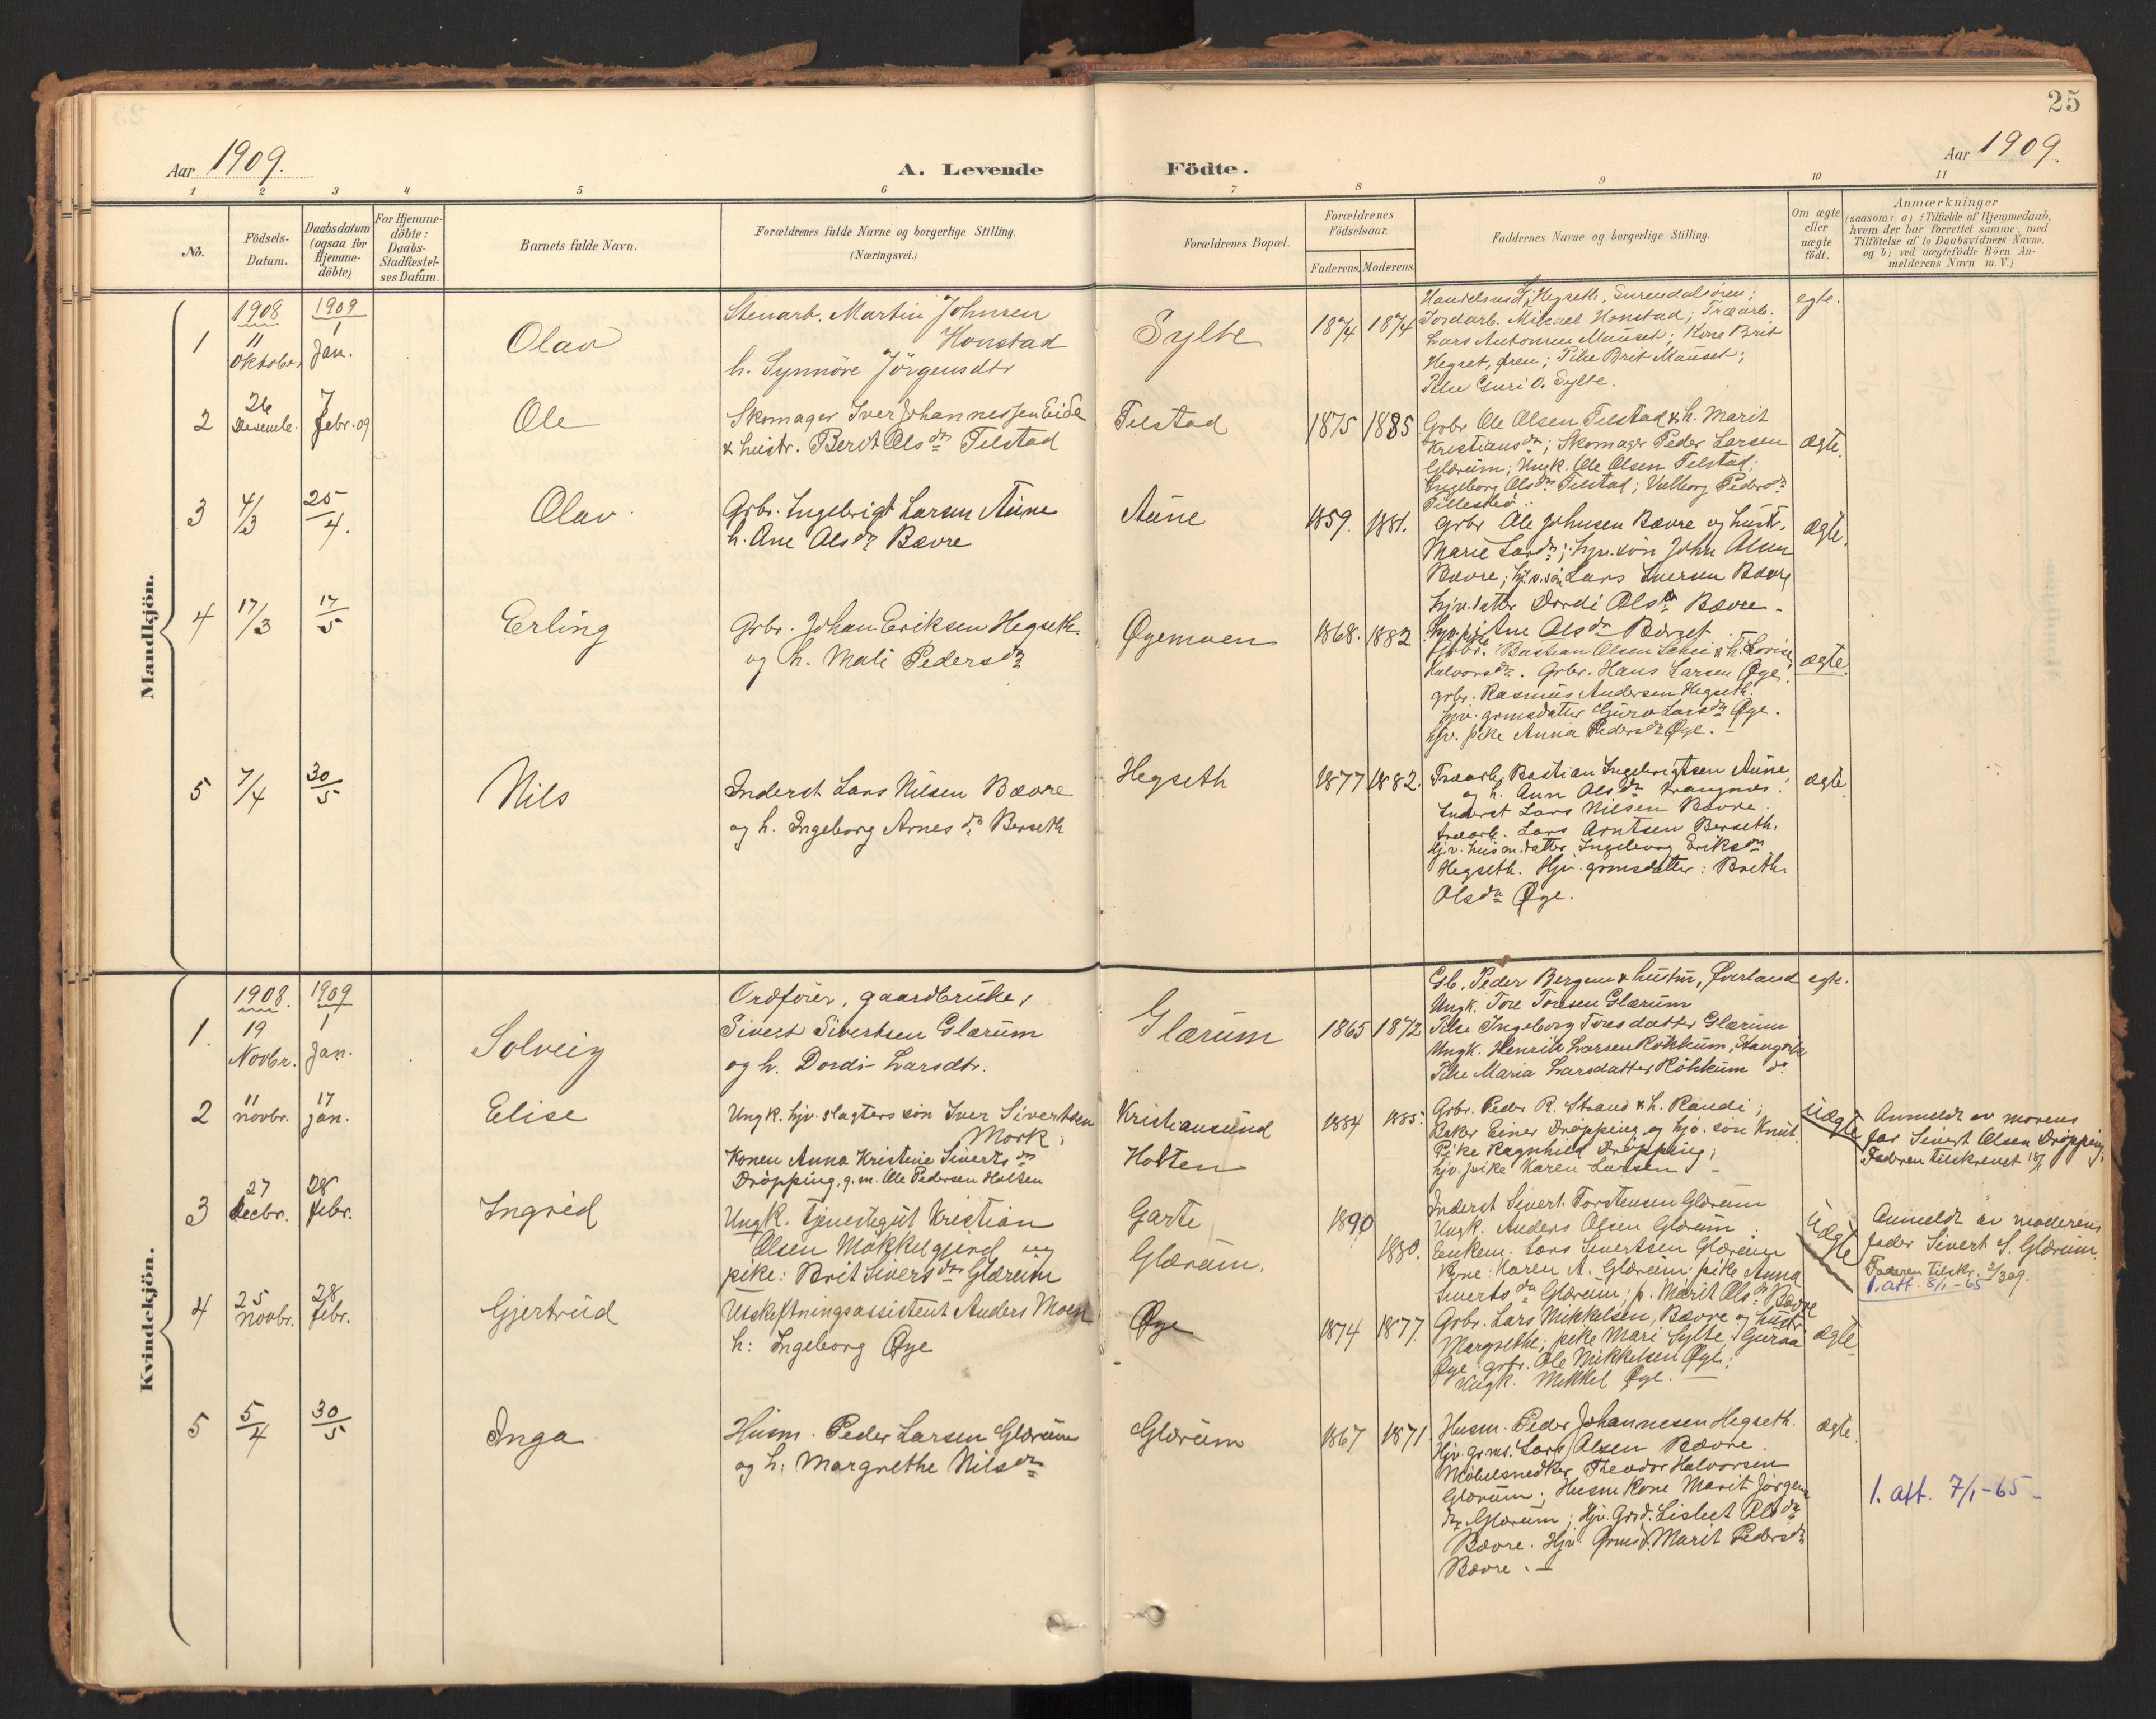 25
Aar 1909.
A. Levende
Födte.
Aar 1909.
1 2 3 4 5 6 7 8 9 10 11
No.
Födsels-
Datum.
Daabsdatum
(ogsaa for
Hjemme-
döbte)
For Hjemme-
döbte:
Daabs-
Stadfæstel-
ses Datum.
Barnets fulde Navn.
Forældrenes fulde Navne og borgerlige Stilling.
(Næringsvei.)
Forældrenes Bopæl.
Forældrenes
Födselsaar.
Faderens. Moderens.
Faddernes Navne og borgerlige Stilling.
Om ægte
eller
uægte
födt.
Anmærkninger
(saasom: a) i Tilfælde af Hjemmedaab,
hvem der har forrettet samme, med
Tilföielse af to Daabsvidners Navne,
og b) ved uægtefödte Börn An-
melderens Navn m. V.)
Mandkjön.
1
1908
11
Oktober
1909
1
Jan.
Olav
Stenarb. Martin Johnsen
Honstad
h. Synnöve Jörgensdtr
Sylte
1874 1874
Hegseth, Surendalsören;
Jordarb. Mikael Honstad; Træarb.
Lars Antonsen Mauset; Kone Brit
Hegset, Øren; Pike Brit Mauset;
Pike Guri O. Sylte.
egte.
2
26
Desembr.
7
Febr. 09
Ole
Skomager Iver Johannessen Eide
& hustr. Berit Olsdr Telstad
Telstad
1875 1885
Grbr Ole Olsen Telstad & h. Marit
Kristiansdr; Skomager Peder Larsen
Glærum; Ungk. Ole Olsen Telstad;
Ingeborg Olsdr Telstad; Valborg Pedersdr
ægte.
3
4/3
25/4.
Olav.
Grbr. Ingebrigt Larsen Aune
h. Ane Olsdr Bævre
Aune
1859. 1881.
Grbr Ole Johnsen Bævre og hustr.
Marie Larsdr; hjv. søn John Olsen
Bævre; hjv. søn Lars Iversen Bævre
hjv. datter Dordi Olsdr Bævre.
hjv. pike Ane Olsdr Bævre
ægte.
4
17/3
17/5
Erling
Grbr. Johan Eriksen Hegseth
og h. Mali Pedersdr
Øyemoen
1868. 1882
Grbr. Bastian Olsen Schei & h. Lovise
Halvorsdr. Grbr. Hans Larsen Øye.
grbr. Rasmus Andersen Hegseth.
hjv. grmsdatter Guro Larsdr Øye.
hjv. pike Anna Pedersdr Øye.
ægte.
5
7/4
30/5
Nils
Inderst Lars Nilsen Bævre
og h. Ingeborg Arnesdr Berseth
Hegseth
1877 1882.
Træarb. Bastian Ingebrigtsen Aune,
og h. Ann Olsdr Krangnes.
Inderst Lars Nilsen Bævre.
træarb. Lars Arntsen Berseth.
Hjv. husm. datter Ingeborg Eriksdr
Hegseth. Hjv. grmsdatter: Breth
Olsdr Øye.
ægte
Kvindekjön.
1.
1908.
19
Novbr.
1909
1
Jan.
Solveig
Ordförer, gaardbruker,
Sivert Sivertsen Glærum
og h. Dordi Larsdtr.
Glærum
1865 1872
Gb. Peder Bergem & hustru, Øverland
Ungk. Tore Toresen Glærum
Pike Ingeborg Toresdatter Glærum
Ungk. Henrik Larsen Röhkum, Stangvik
Pike Maria Larsdatter Röhkum do
egte.
2
11
novbr.
17
jan.
Elise
Ungk. hjv. slagters søn Iver Sivertsen
Mork;
Konen Anna Kristine Sivertsdr
Drøpping, g. m. Ole Pedersen Holten
Kristiansund
Holten
1884 1885.
Grbr. Peder R. Strand & h. Randi;
Baker Einer Drøpping og hjv. søn Knut.
Pike Ragnhild Drøpping;
hjv. pike Karen Larsen
Uægte
Anmeldt av morens
far Sivert Olsen Drøpping;
Faderen tilskrevet 18/1
3
27
Decbr.
28
febr.
Ingrid
Ungk. tjenestegut Kristian
Olsen Mokkelgjerd og
pike: Brit Siversdr Glærum
Garte
Glærum.
1890
1880.
Inderst Sivert Torstensen Glærum
Ungk. Anders Olsen Glærum
Enkem. Lars Sivertsen Glærum
Kone: Karen A. Glærum; pike Anna
Sivertsdr Glærum; p. Marit Olsdr Bævre
Uægte
Anmeldt av moderens
fader Sivert S. Glærum.
Faderen tilskr. 2/3 09.
1. att. 8/1-65
4
25
novbr.
28
febr.
Gjertrud
Utskiftningsassistent Anders Moen
h: Ingeborg Øye
Øye
1874 1877.
Grbr. Lars Mikkelsen, Bævre og hustr
Margrethe; pike Mari Sylte, Guraa
Øye. grbr. Ole Mikkelsen Øye;
Ungk. Mikkel Øye.
ægte.
5
5/4
30/5
Inga
Husm. Peder Larsen Glærum
og h. Margrethe Nilsdr
Glærum
1867 1871
Husm. Peder Johannesen Hegseth.
Hjv. grms. Lars Olsen Bævre.
Møbelsnedker Theodor Halvorsen
Glærum; Husm Kone Marit Jørgens
dr Glærum; Hjv. Grd. Lisbet Olsdr
Bævre. Hjv. Grmsd. Marit Pedersdr
Bævre.
ægte.
1. att. 7/1-65